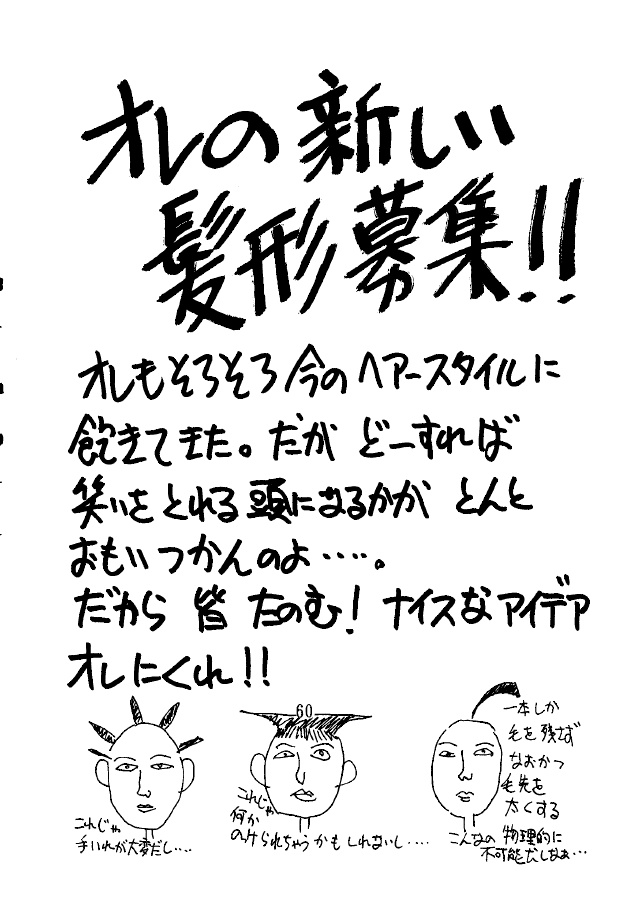 オレの新しい
髪形募集!!
オレもそろそろ今のヘアースタイルに
飽きてきた。だが どーすれば
笑いをとれる頭になるかが とんと
おもいつかんのよ‥‥。
だから 皆 たのむ! ナイスなアイデア
オレにくれ!!
これじゃ
手いれが大変だし‥‥
60
これじゃ
何か
のけられちゃうかもしれないし‥‥
一本しか
毛を残さず
なおかつ
毛先を
太くする
こんなの 物理的に
不可能だしなぁ…